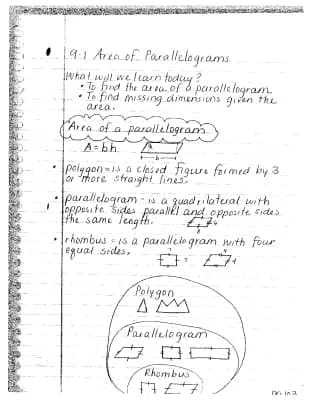 9-1 Area of Parallelograms
What will we learn today?
• To find the area of a parallelogram.
• To find missing dimensions given the
area.
Area of a parallelogram
A=bh
b
• polygon - is a closed figure formed by 3
or more straight lines.
• parallelogram - is a quadrilateral with
opposite sides parallel and opposite sides
the same length.
• rhombus - is a parallelogram with four
equal sides.
Polygon
Parallelogram
Rhombus